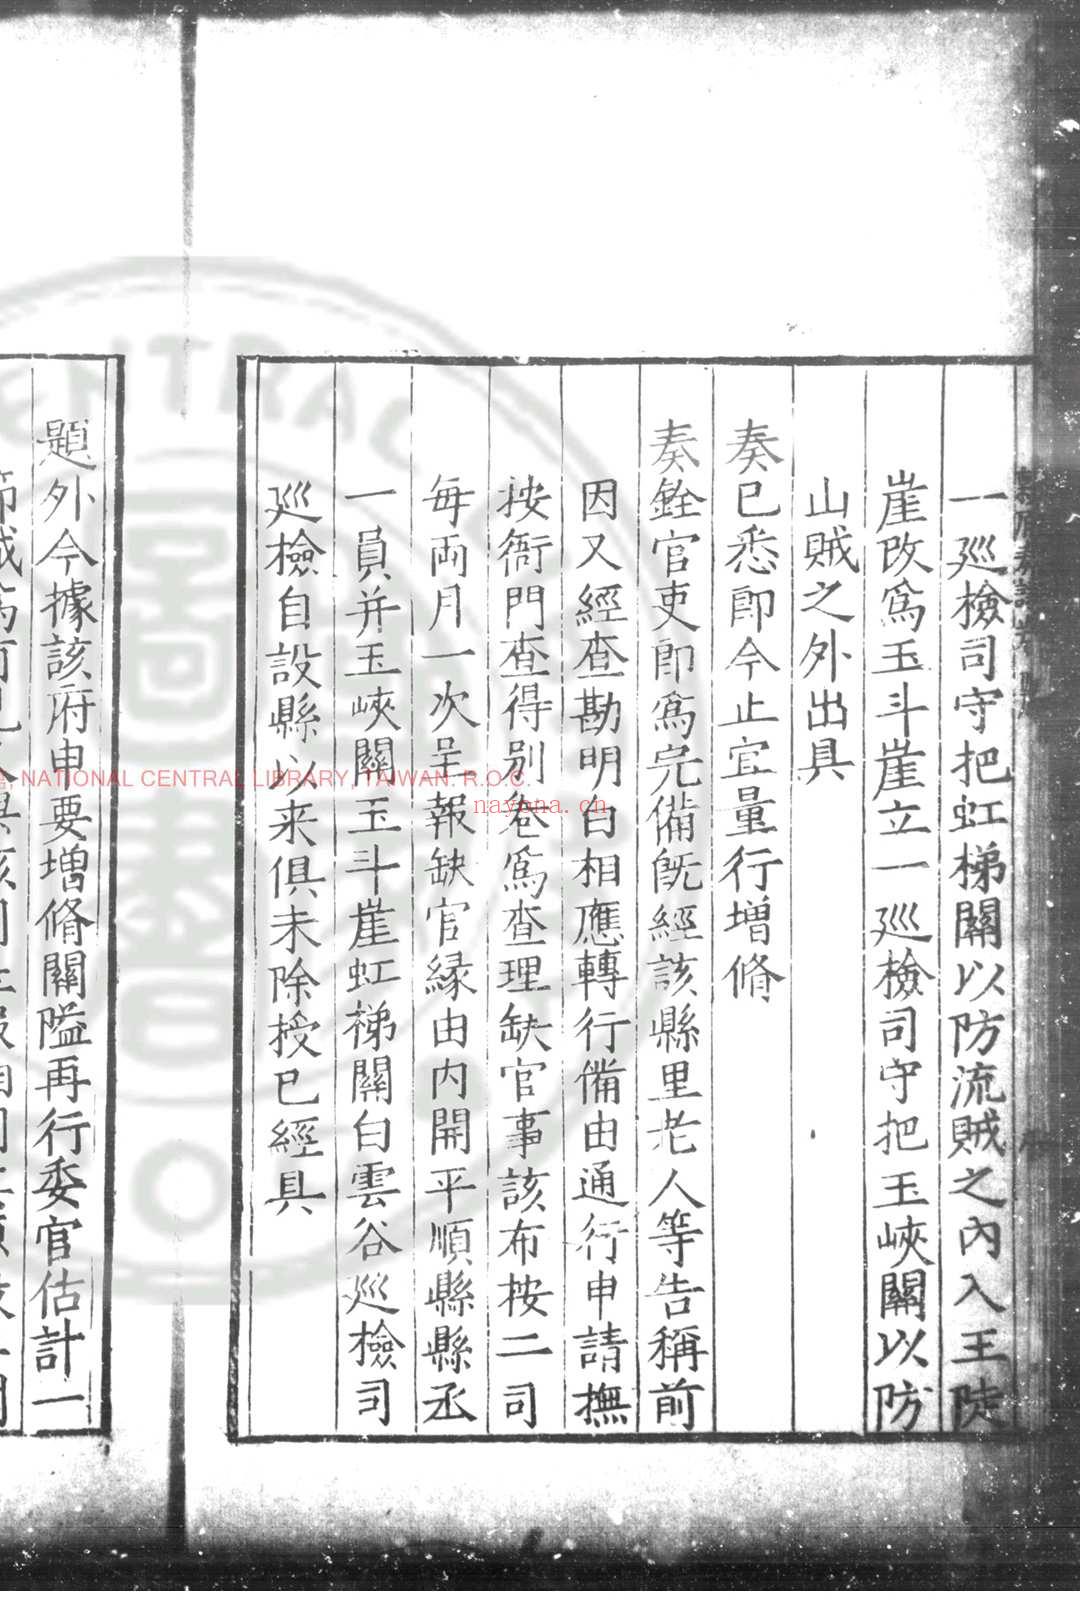 一廵檢司守把虹梯關以防流賊之內入王陡
崖改爲玉斗崖立一廵檢司守把玉峽關以防
山賊之外出具
奏已悉即今止宜量行增脩
奏銓官吏即爲完備旣經該縣里老人等告稱前
因又經查勘明白相應轉行備由通行申請撫
按衙門查得别卷爲查理缺官事該布按二司
每兩月一次呈報缺官縁由内開平順縣縣丞
一員并玉峽關玉斗崖虹梯關白雲谷廵檢司
廵檢自設縣以来俱未除授已經具
題外今據該府申要增脩關隘再行委官估計一
NATIONAL CENTRAL LIBRARY, TAIWAN. R.O.C.
nayona.cn